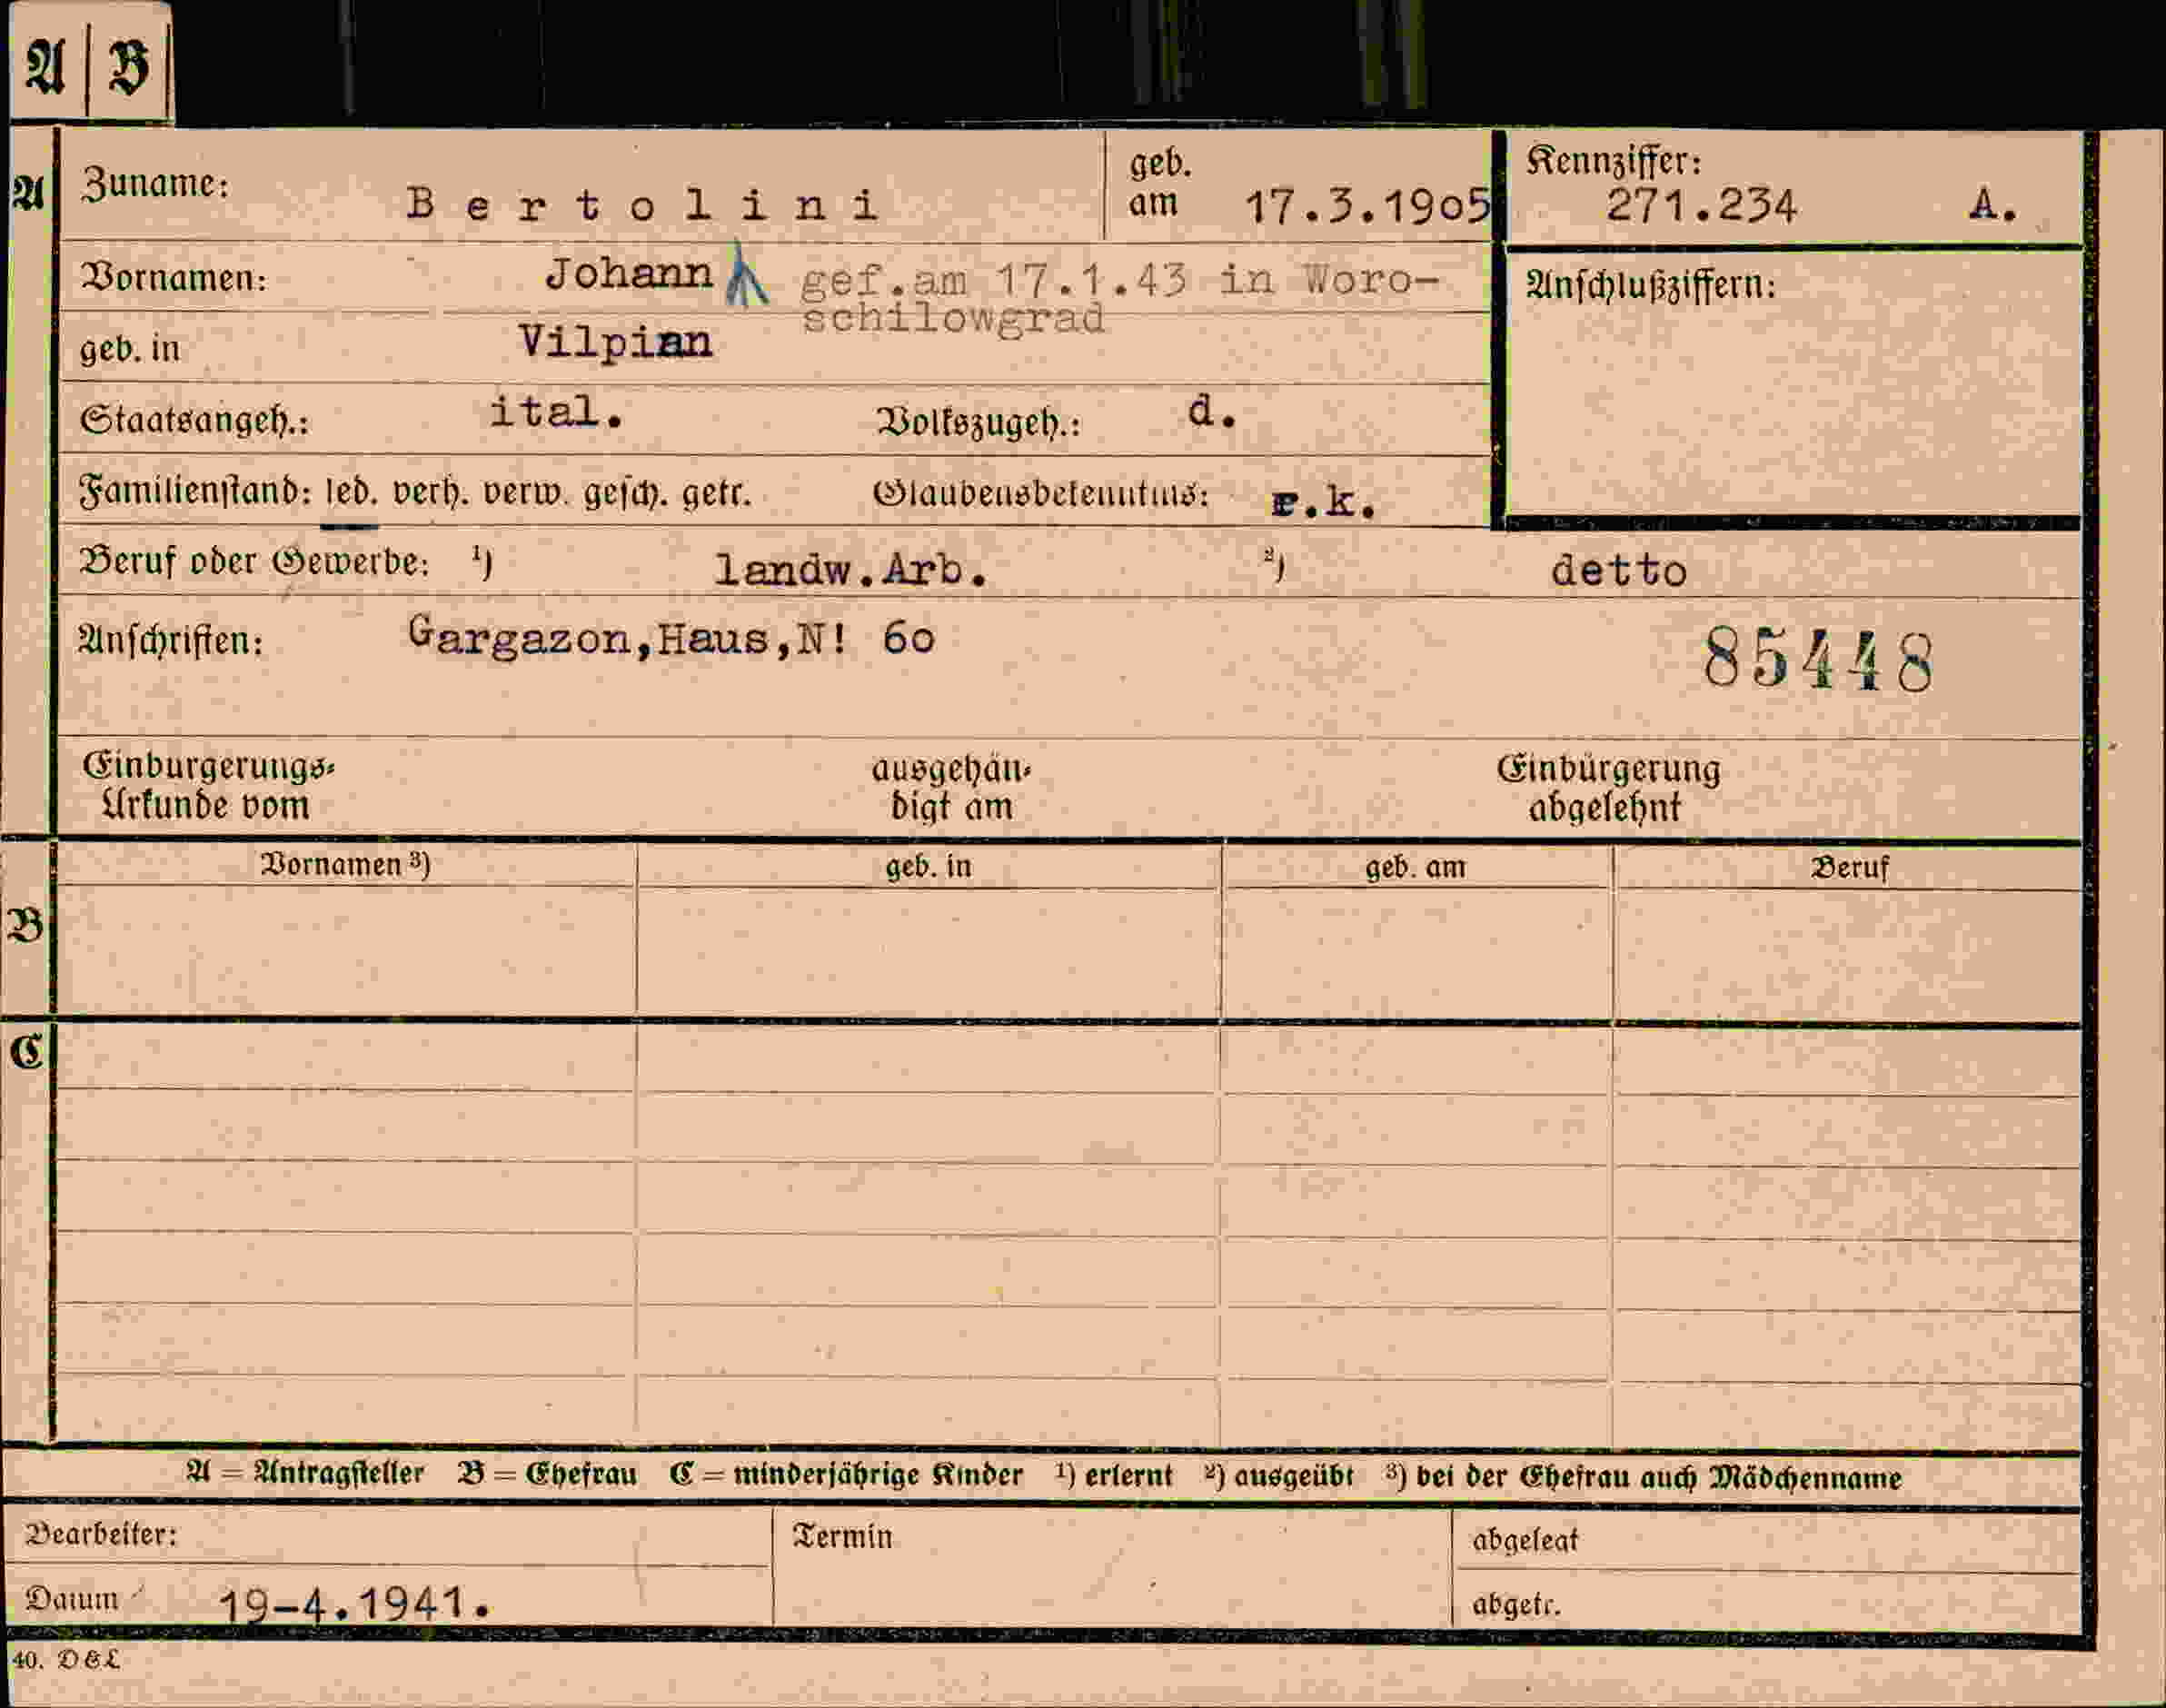 A B
A Zuname: Bertolini geb. am 17.3.1905 Kennziffer: 271.234 A.
Vornamen: Johann gef.am 17.1.43 in Woro-
schilowgrad
Anschlußziffern:
geb. in Vilpian
Staatsangeh.: ital. Volkszugeh.: d.
Familienstand: led. verh. verw. gesch. getr. Glaubensbekenntnis: r.k.
Beruf oder Gewerbe: ¹) landw.Arb. ²) detto
Anschriften: Gargazon,Haus,N! 60
85448
Einbürgerungs- ausgehän- Einbürgerung
Urkunde vom digt am abgelehnt
Vornamen ³) geb. in geb. am Beruf
B
C
A = Antragsteller B = Ehefrau C = minderjährige Kinder ¹) erlernt ²) ausgeübt ³) bei der Ehefrau auch Mädchenname
Bearbeiter: Termin abgelegt
Datum 19-4.1941. abgetr.
40. D&L